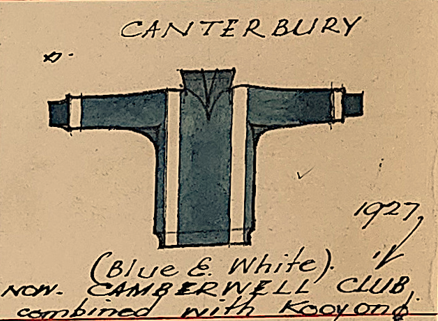 CANTERBURY
1927
(Blue & White).
NOW. CAMBERWELL CLUB
combined with Kooyong.